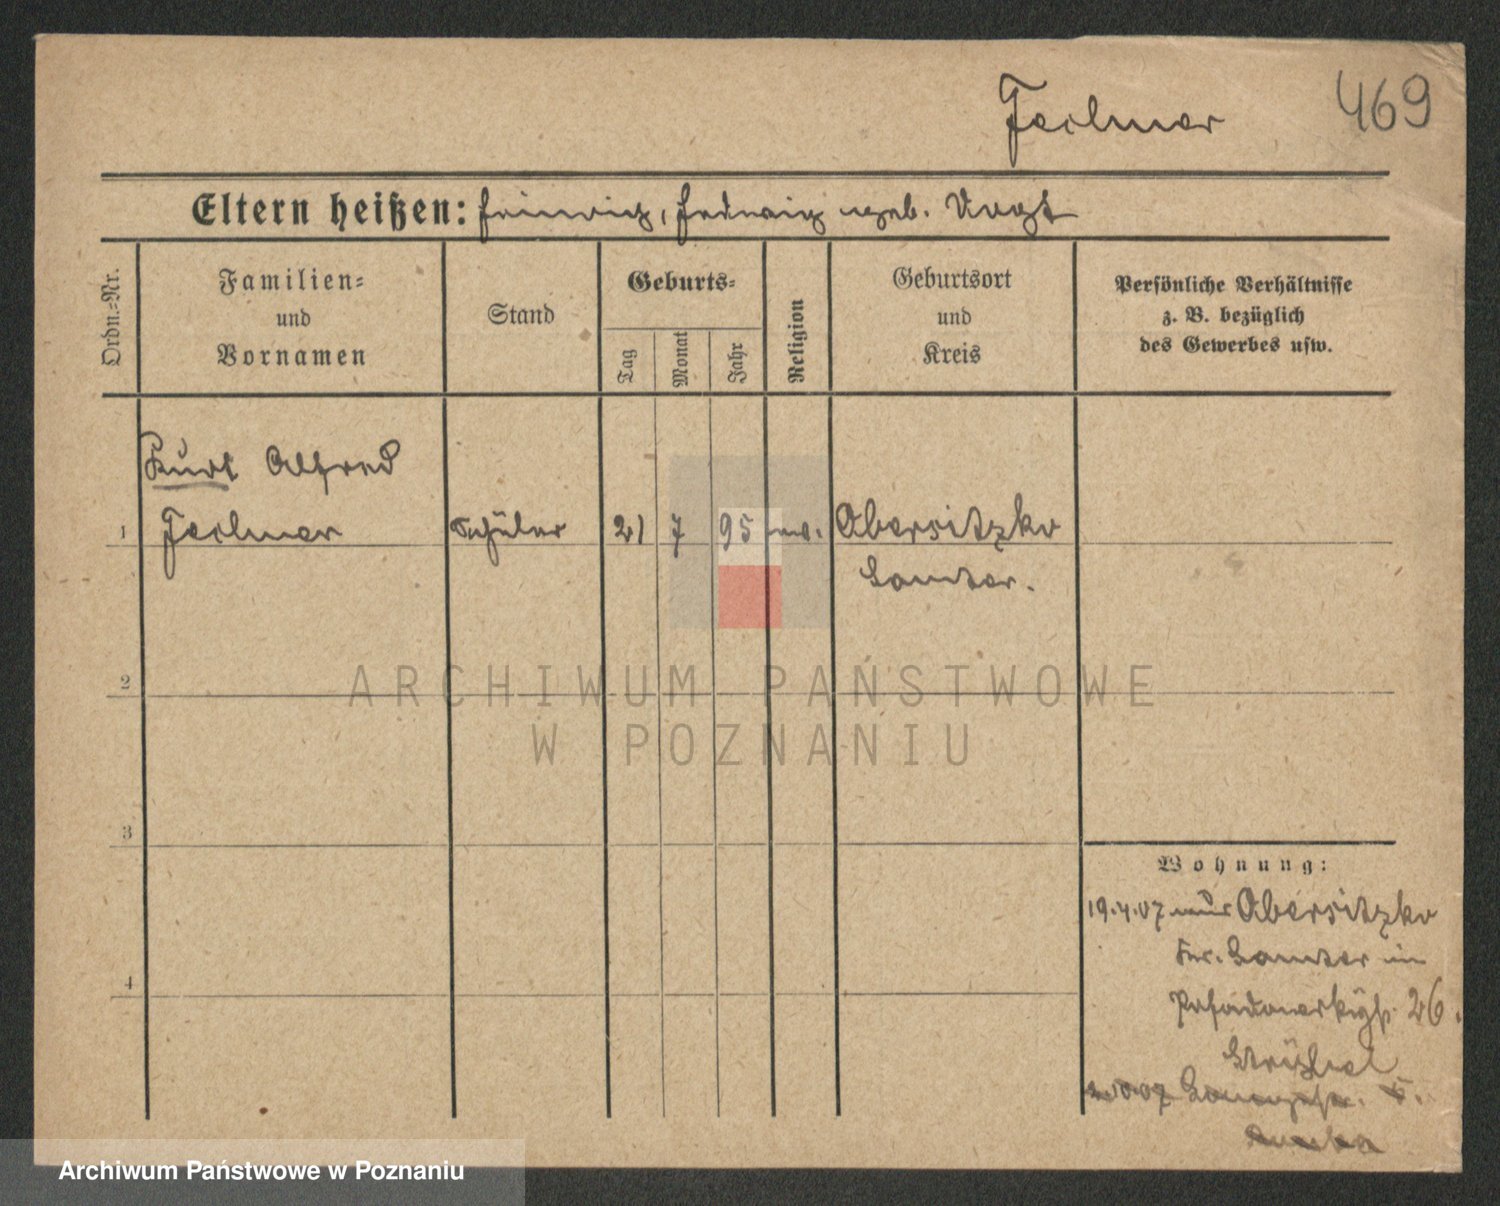 Feilmer
469
Eltern heißen: Heinrich, Hedwig geb. Vogt
Ordn.=Nr.
Familien=
und
Vornamen
Stand
Geburts=
Tag
Monat
Jahr
Religion
Geburtsort
und
Kreis
Persönliche Verhältnisse
z. B. bezüglich
des Gewerbes usw.
Kurt Alfred
1 Feilmer Schüler 21 7 95 ev. Obersitzko
Samter.
2
3
4
ARCHIWUM PAŃSTWOWE
W POZNANIU
Wohnung:
19.4.07 aus Obersitzko
Kr. Samter in
26.
Archiwum Państwowe w Poznaniu